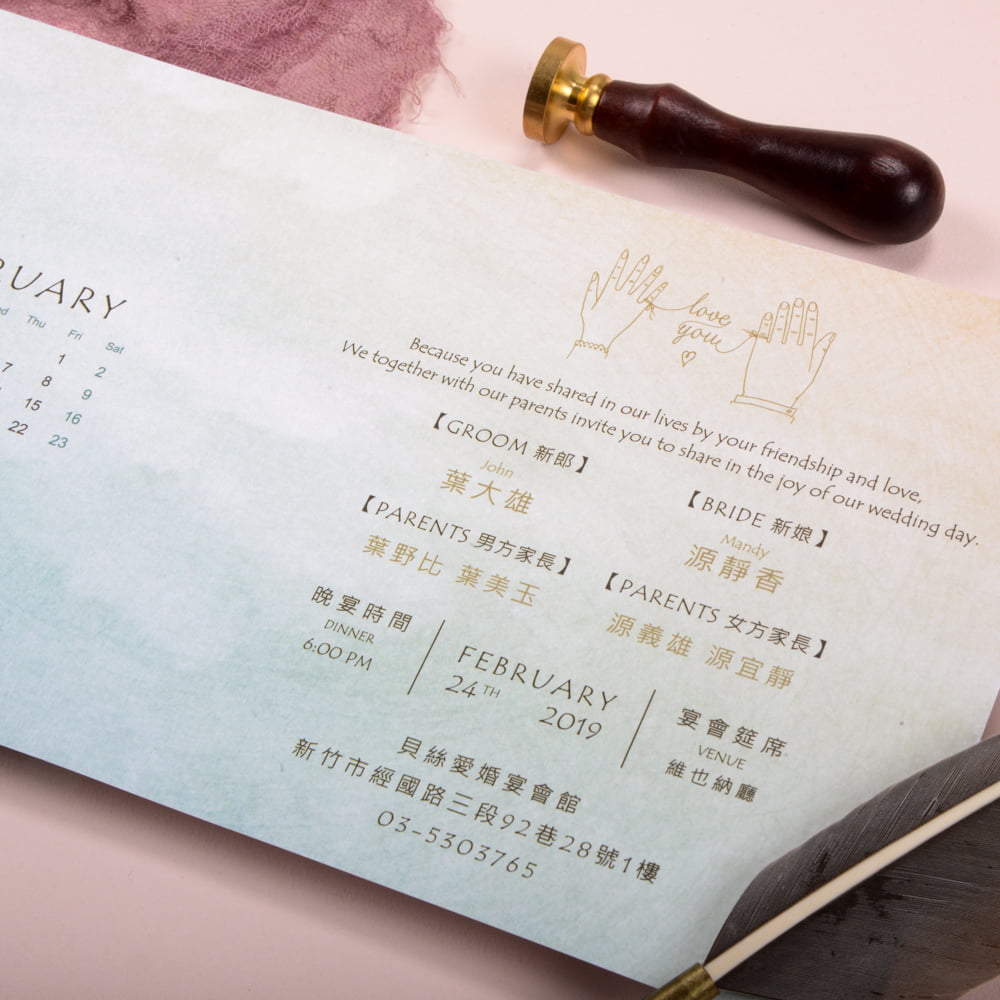 RUARY
Thu Fri Sat
1 2
7 8 9
15 16
22 23
love
you
Because you have shared in our lives by your friendship and love,
We together with our parents invite you to share in the joy of our wedding day.
【GROOM 新郎】
John
葉大雄
【PARENTS 男方家長】
葉野比 葉美玉
【BRIDE 新娘】
Mandy
源靜香
【PARENTS 女方家長】
源義雄 源宜靜
晚宴時間
DINNER
6:00 PM
FEBRUARY
24TH
2019
宴會筵席
VENUE
維也納廳
貝絲愛婚宴會館
新竹市經國路三段92巷28號1樓
03-5303765